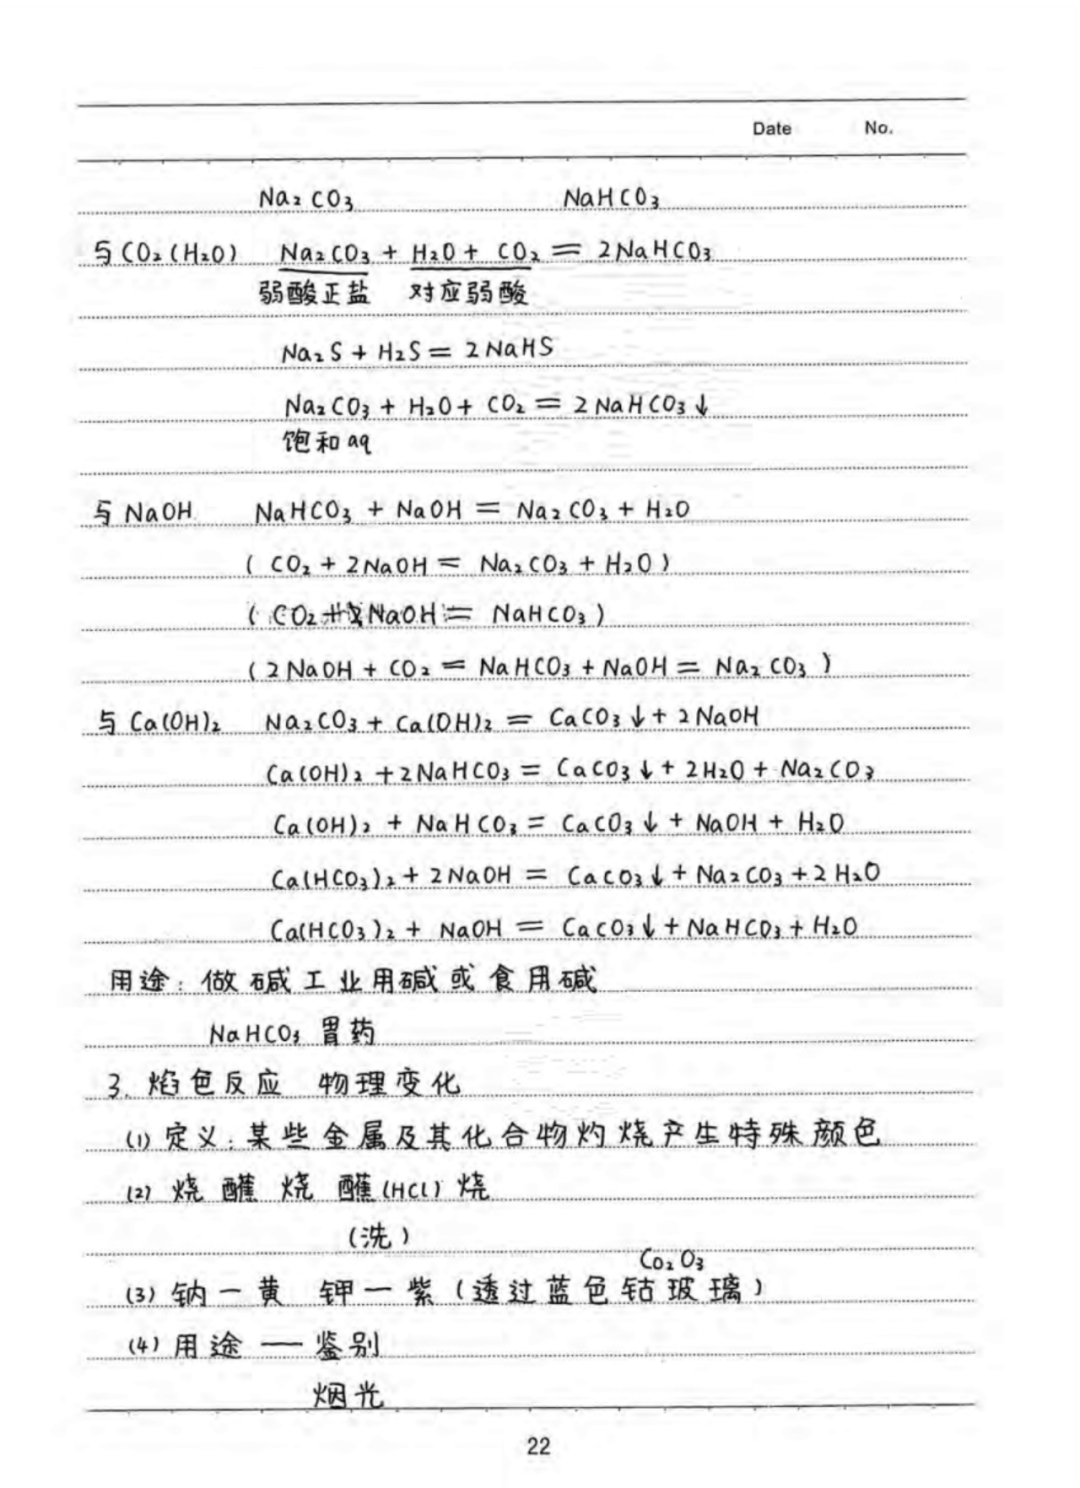 Date No.
Na₂CO₃ NaHCO₃
与CO₂(H₂O) Na₂CO₃ + H₂O + CO₂ = 2NaHCO₃
弱酸正盐 对应弱酸
Na₂S + H₂S = 2NaHS
Na₂CO₃ + H₂O + CO₂ = 2NaHCO₃↓
饱和aq
与NaOH NaHCO₃ + NaOH = Na₂CO₃ + H₂O
( CO₂ + 2NaOH = Na₂CO₃ + H₂O )
( CO₂ + NaOH = NaHCO₃ )
( 2NaOH + CO₂ = NaHCO₃ + NaOH = Na₂CO₃ )
与Ca(OH)₂ Na₂CO₃ + Ca(OH)₂ = CaCO₃↓ + 2NaOH
Ca(OH)₂ + 2NaHCO₃ = CaCO₃↓ + 2H₂O + Na₂CO₃
Ca(OH)₂ + NaHCO₃ = CaCO₃↓ + NaOH + H₂O
Ca(HCO₃)₂ + 2NaOH = CaCO₃↓ + Na₂CO₃ + 2H₂O
Ca(HCO₃)₂ + NaOH = CaCO₃↓ + NaHCO₃ + H₂O
用途: 做碱工业用碱或食用碱
NaHCO₃ 胃药
3. 焰色反应 物理变化
(1) 定义: 某些金属及其化合物灼烧产生特殊颜色
(2) 烧 蘸 烧 蘸(HCl) 烧
(洗)
Co₂O₃
(3) 钠一黄 钾一紫 (透过蓝色钴玻璃)
(4) 用途 — 鉴别
烟光
22